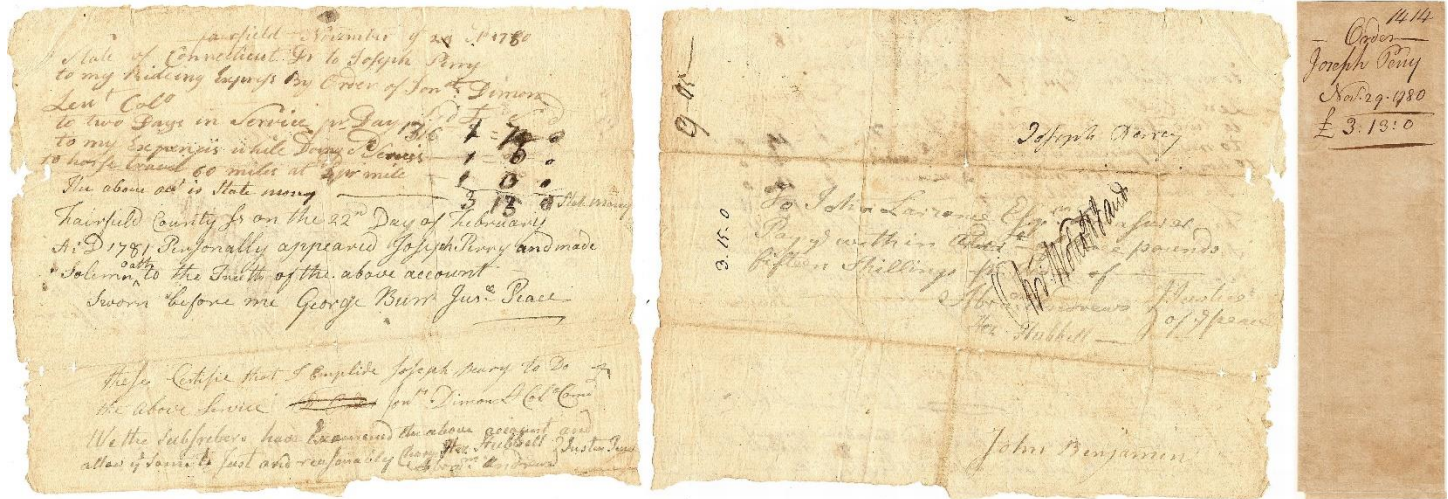 Fairfield November ye 29 AD 1780
State of Connecticut Dr to Joseph Perry
to my Rideing Expnys By Order of Jonth Dimon
Leut Colo
to two Days in Service pr Day 13/6 1 = 7 0
to my Expenses while Doing sd Service 1 = 0
to horse travel 60 miles at pr mile 1 0
the above act is State mony 3 13 0 State Money
Fairfield County Ss on the 22nd Day of February
A:D 1781 Personally appeared Joseph Perry and made
Solemn oath to the Truth of the above account
Sworn before me George Burr Juse Peace
these Certifie that I Emplide Joseph peary to Do
the above Service Jonth Dimon Lt Colo Comd
We the Subscribers have Examined the above account and
allow ye same is Just and reasonably Hez. Hubbell
Abrm Andrews Justes Peace
9 05
3.15.0
Joseph Perrey
To John Lawrence Esqr Treasurer
Pay ye within pounds
fifteen Shillings of
Abrm Andrews Justices
Hez Hubbell of ye peace
John Benjamin
1414
Order
Joseph Perry
Nov. 29. 1780
£ 3:13:0